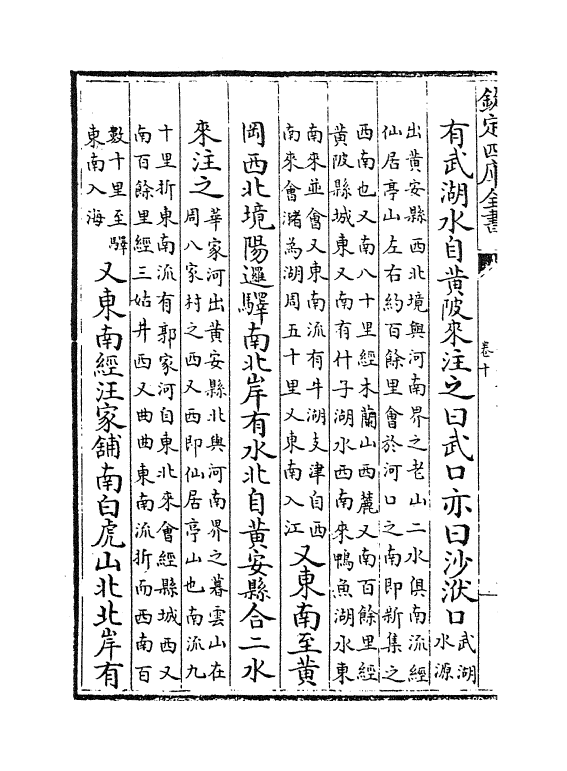 欽定四庫全書
卷十
有武湖水自黄陂來注之曰武口亦曰沙洑口
武湖
水源
出黄安縣西北境與河南界之老山二水俱南流經
仙居亭山左右約百餘里會於河口之南即新集之
西南也又南八十里經木蘭山西麓又南百餘里經
黄陂縣城東又南有什子湖水西南來鴨魚湖水東
南來並會又東南流有牛湖支津自西
南來會潴為湖周五十里又東南入江
又東南至黄
岡西北境陽邏驛南北岸有水北自黄安縣合二水
來注之
華家河出黄安縣北與河南界之暮雲山在
周八家村之西又西即仙居亭山也南流九
十里折東南流有郭家河自東北來會經縣城西又
南百餘里經三姑井西又曲曲東南流折而西南百
數十里至驛
東南入海
又東南經汪家舖南白虎山北北岸有